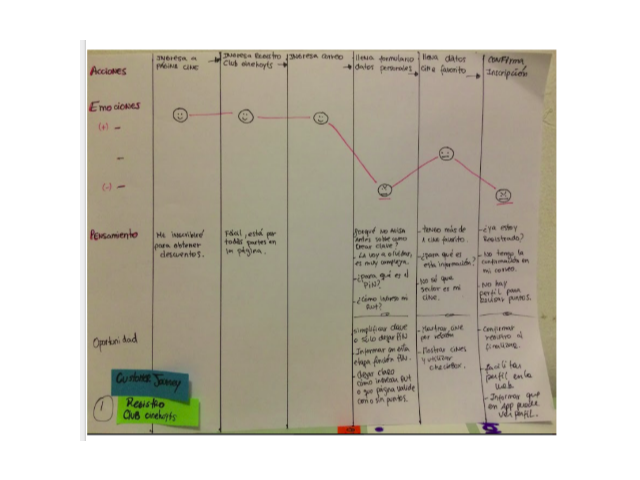 Acciones
Ingresa a
página cine
Ingresa Registro
Club cinehoyts
Ingresa correo
llena formulario
datos personales
llena datos
cine favorito
CONFIRMA
Inscripción
Emociones
(+) -
-
(-) -
Pensamiento
Me inscribiré
para obtener
descuentos.
Fácil, está por
todas partes en
la página.
Porqué no avisa
antes sobre como
crear clave?
- La voy a olvidar,
es muy compleja.
- ¿para qué es el
PIN?
- ¿Cómo ingreso mi
RUT?
- tengo más de
1 cine favorito.
- ¿para qué es
esta información?
- No sé que
sector es mi
cine.
- ¿Ya estoy
Registrado?
- No tengo la
confirmación en
mi correo.
- No hay
perfil para
revisar puntos.
Oportunidad
Simplificar clave
o sólo dejar PIN
- Informar en esta
etapa función PIN.
- Dejar claro
como ingresar RUT
o que página valide
con o sin puntos.
- Mostrar cine
por
- Mostrar cines
y utilizar
- Confirmar
registro al
finalizar.
- Facilitar
perfil en la
web
- Informar que
en App puede
ver perfil.
Customer Journey
1
Registro
Club cinehoyts